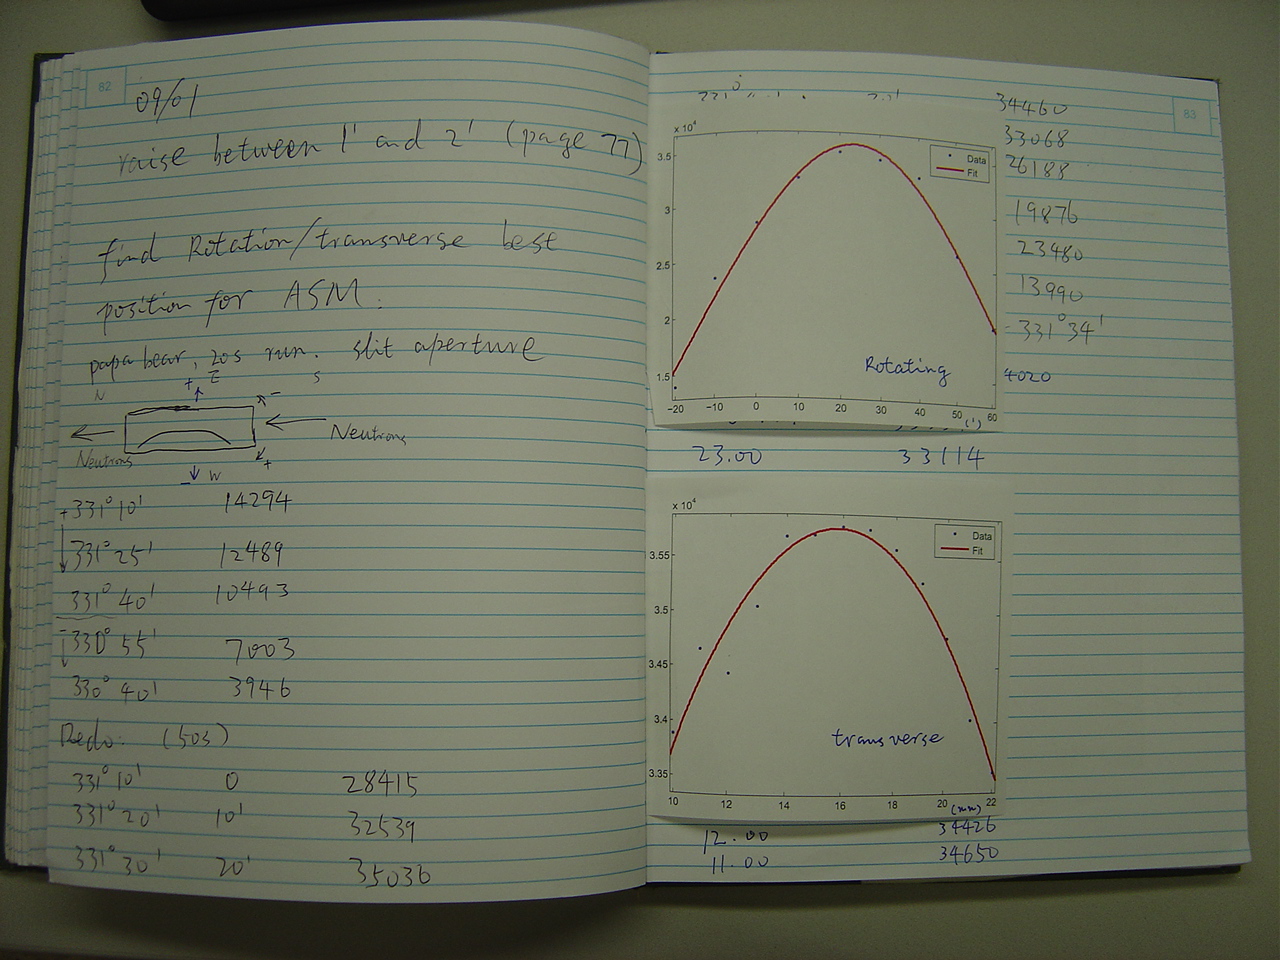 82
09/01
raise between 1' and 2' (page 77)
find Rotation/transverse best
position for ASM.
papa bear, 20s run. slit aperture
N + E S
-
Neutrons
Neutrons
+
- W
+331°10' 14294
331°25' 12489
331°40' 10493
-330°55' 7003
330°40' 3946
Redo: (50s)
331°10' 0 28415
331°20' 10' 32539
331°30' 20' 35036
83
34460
33068
26188
19876
23480
13990
-331°34'
4020
x 10⁴
3.5
3
2.5
2
1.5
Data
Fit
Rotating
-20 -10 0 10 20 30 40 50 60
(')
23.00 33114
x 10⁴
3.55
3.5
3.45
3.4
3.35
Data
Fit
transverse
10 12 14 16 18 20 22
(mm)
12.00 34426
11.00 34650